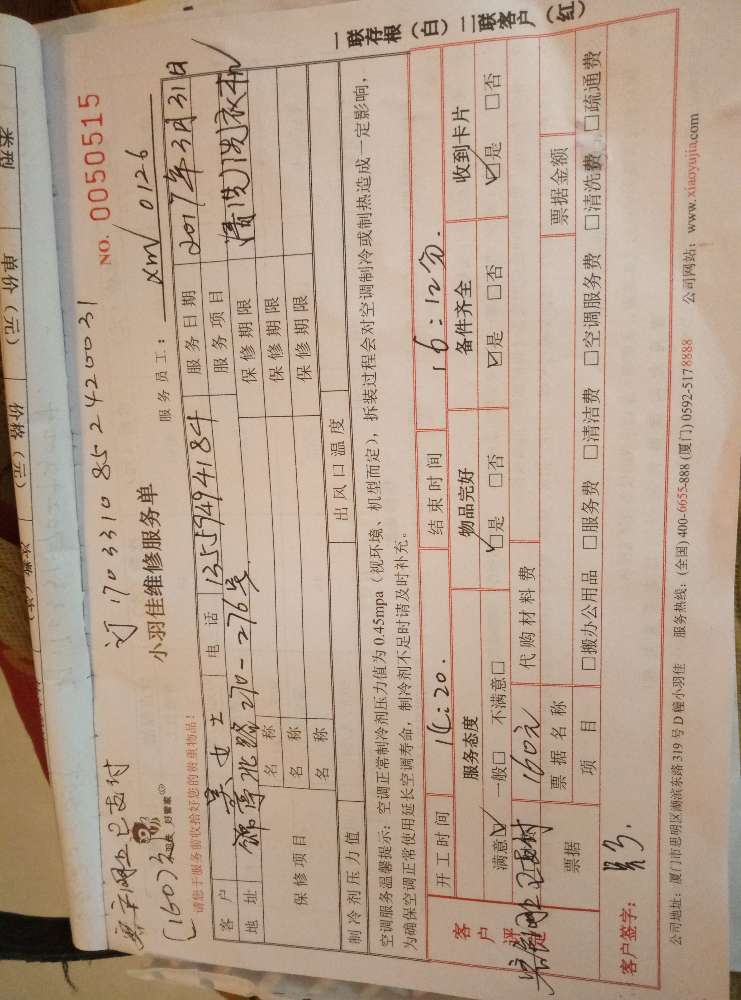 类型
单价(元)
价格(元)
NO. 0050515
订1703310852420031
客户网上已支付
(160)元
小羽佳维修服务单
服务员工: xm 0126
请您于服务前收拾好您的贵重物品!
一联存根(白) 二联客户(红)
客户 吴女士 电话 13559494184 服务日期 2017年3月31日
地址 270-276号 服务项目 清洗洗衣机
保修项目
名称 保修期限
名称 保修期限
名称 保修期限
制冷剂压力值 出风口温度
空调服务温馨提示: 空调正常制冷剂压力值为0.45mpa(视环境、机型而定), 拆装过程会对空调制冷或制热造成一定影响,
为确保空调正常使用延长空调寿命, 制冷剂不足时请及时补充。
开工时间 14:20. 结束时间 16:12分.
客户评定
服务态度 物品完好 备件齐全 收到卡片
满意☑ 一般□ 不满意□ ☑是 □否 ☑是 □否 ☑是 □否
网上已支付 160元 代购材料费
票据 票据名称 票据金额
项目 □搬办公用品 □服务费 □清洁费 □空调服务费 □清洗费 □疏通费
客户签字:
公司地址: 厦门市思明区湖滨东路319号D幢小羽佳 服务热线: (全国)400-6655-888 (厦门)0592-5178888 公司网站: www.xiaoyujia.com